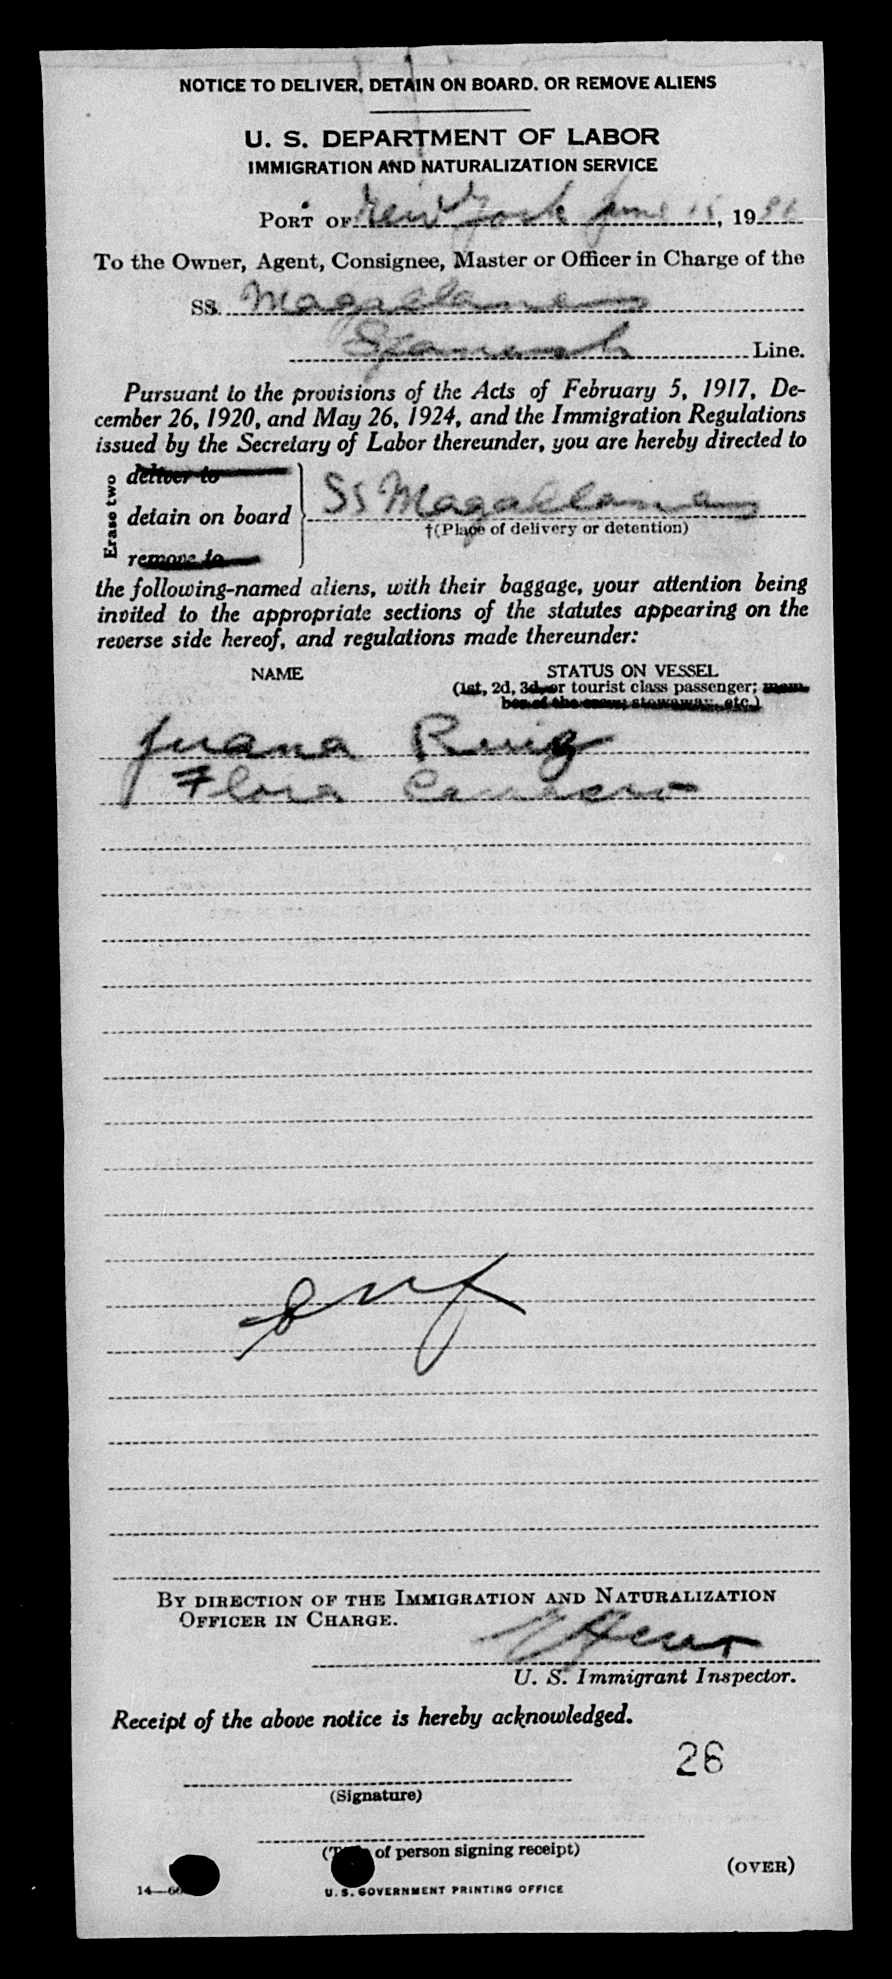 NOTICE TO DELIVER, DETAIN ON BOARD, OR REMOVE ALIENS
U. S. DEPARTMENT OF LABOR
IMMIGRATION AND NATURALIZATION SERVICE
PORT OF New York June 15, 19
To the Owner, Agent, Consignee, Master or Officer in Charge of the
SS. Magallanes
Spanish Line.
Pursuant to the provisions of the Acts of February 5, 1917, De-
cember 26, 1920, and May 26, 1924, and the Immigration Regulations
issued by the Secretary of Labor thereunder, you are hereby directed to
Erase two
deliver to
detain on board
remove to
SS Magallanes
†(Place of delivery or detention)
the following-named aliens, with their baggage, your attention being
invited to the appropriate sections of the statutes appearing on the
reverse side hereof, and regulations made thereunder:
NAME
STATUS ON VESSEL
(1st, 2d, 3d, or tourist class passenger; mem-
ber of the crew; stowaway, etc.)
Juana Ruiz
Flora
BY DIRECTION OF THE IMMIGRATION AND NATURALIZATION
OFFICER IN CHARGE.
U. S. Immigrant Inspector.
Receipt of the above notice is hereby acknowledged.
26
(Signature)
of person signing receipt)
(OVER)
14—
U. S. GOVERNMENT PRINTING OFFICE